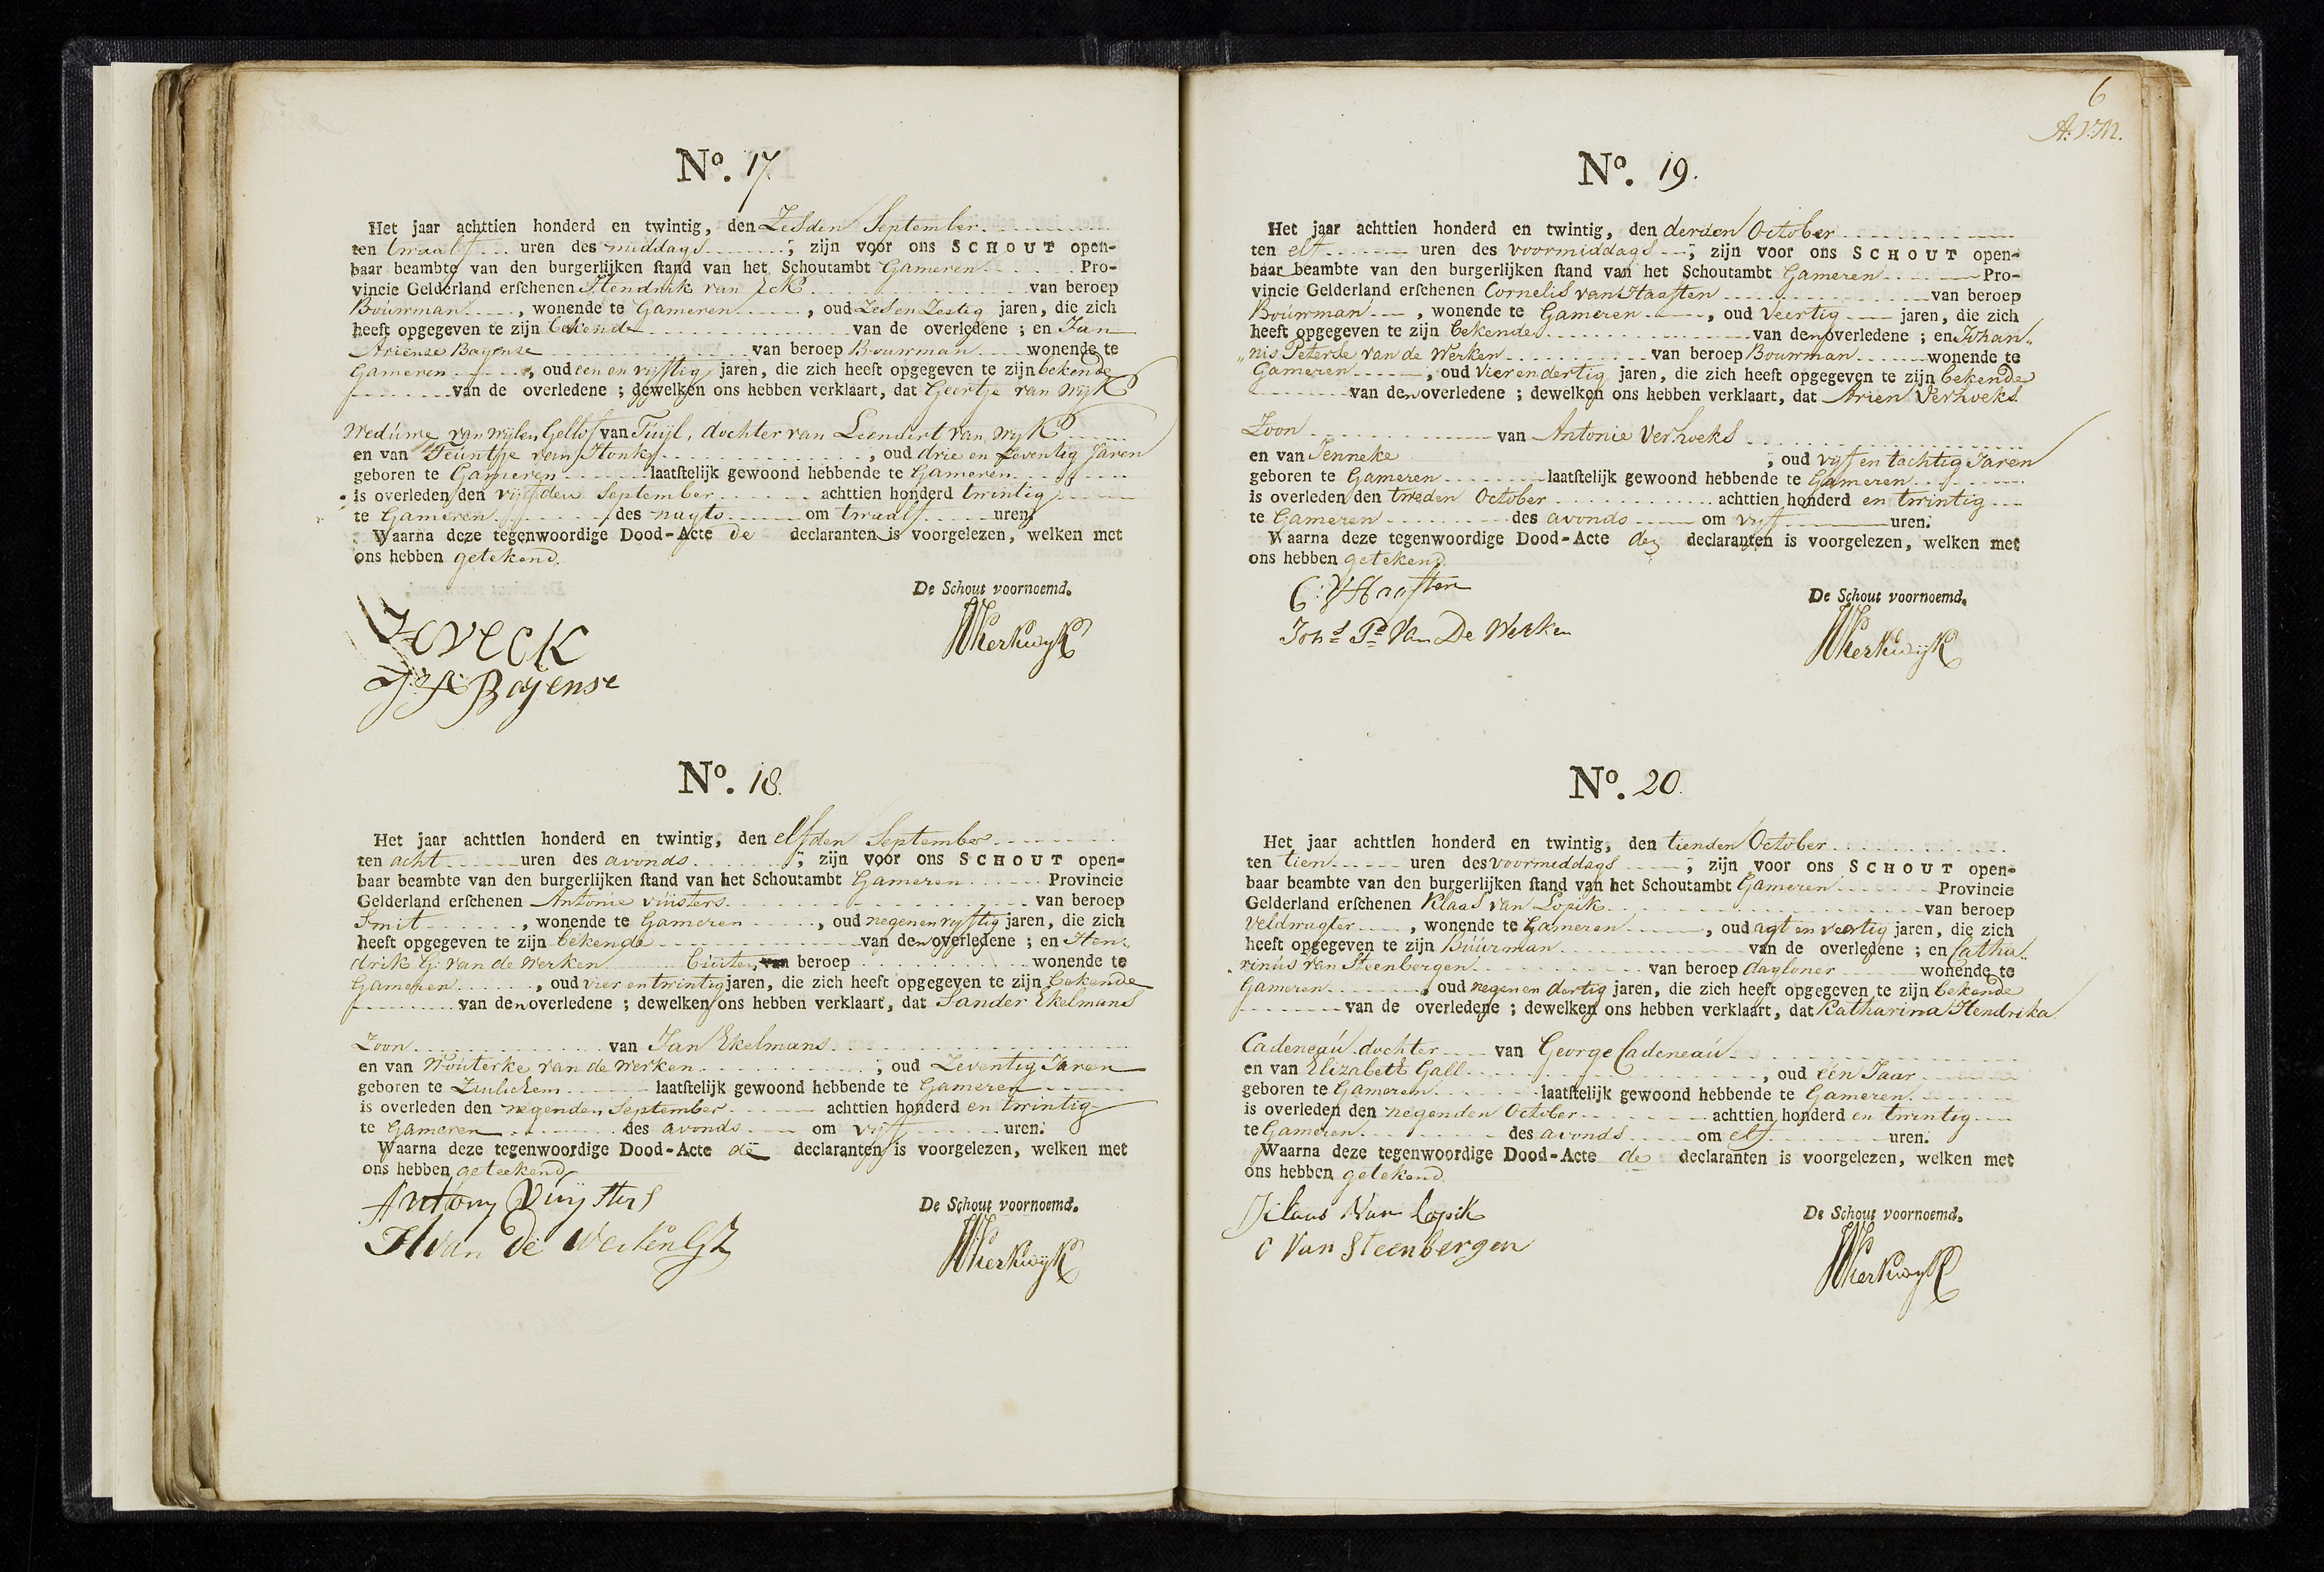 No. 17
Het jaar achttien honderd en twintig, den Zesden September
ten twaalf uren des middags ; zijn voor ons SCHOUT open-
baar beambte van den burgerlijken stand van het Schoutambt Gameren Pro-
vincie Gelderland erschenen Hendrik van Eck van beroep
Bouwman , wonende te Gameren , oud Zes en Zestig jaren, die zich
heeft opgegeven te zijn bekende van de overledene ; en Jan
Ariense Bayense van beroep Bouwman wonende te
Gameren , oud een en vijftig jaren, die zich heeft opgegeven te zijn bekende
van de overledene ; dewelken ons hebben verklaart, dat Geertje van Wijk
Weduwe van wijlen Gellof van Tuijl, dochter van Leendert van Wijk
en van Teuntje van Honk , oud drie en seventig Jaren
geboren te Gameren laatstelijk gewoond hebbende te Gameren
is overleden den vijfden September achttien honderd twintig
te Gameren des nagts om twaalf uren.
Waarna deze tegenwoordige Dood-Acte de declaranten is voorgelezen, welken met
ons hebben getekend.
De Schout voornoemd.
HVECK
J:A: Bayense
WKerkwijk
No. 18.
Het jaar achttien honderd en twintig, den elfden September
ten acht uren des avonds ; zijn voor ons SCHOUT open-
baar beambte van den burgerlijken stand van het Schoutambt Gameren Provincie
Gelderland erschenen Antonie vuisters van beroep
Smit , wonende te Gameren , oud negenenvyftig jaren, die zich
heeft opgegeven te zijn bekende van den overledene ; en Hen-
drik G: van de Werken buiten van beroep wonende te
Gameren , oud vier en twintig jaren, die zich heeft opgegeven te zijn bekende
van den overledene ; dewelken ons hebben verklaart, dat Sander Ekelmans
Zoon van Jan Ekelmans
en van Wouterke van de Werken ; oud Zeventig Jaren
geboren te Zuilichem laatstelijk gewoond hebbende te Gameren
is overleden den negenden September achttien honderd en twintig
te Gameren des avonds om vijf uren.
Waarna deze tegenwoordige Dood-Acte de declaranten is voorgelezen, welken met
ons hebben geteekend
De Schout voornoemd.
Antony Vuysters
H van De Werken GZ
WKerkwijk
6
A: V: M.
No. 19.
Het jaar achttien honderd en twintig, den derden October
ten elf uren des voormiddags ; zijn voor ons SCHOUT open-
baar beambte van den burgerlijken stand van het Schoutambt Gameren Pro-
vincie Gelderland erschenen Cornelis van Haaften van beroep
Bouwman , wonende te Gameren , oud Veertig jaren, die zich
heeft opgegeven te zijn bekende van den overledene ; en Johan-
nis Peterse van de Werken van beroep Bouwman wonende te
Gameren , oud Vier en dertig jaren, die zich heeft opgegeven te zijn bekende
van den overledene ; dewelken ons hebben verklaart, dat Arien Verhoeks
Zoon van Antonie Verhoeks
en van Jenneke , oud vijf en tachtig Jaren
geboren te Gameren laatstelijk gewoond hebbende te Gameren
is overleden den tweden October achttien honderd en twintig
te Gameren des avonds om vijf uren.
Waarna deze tegenwoordige Dood-Acte de declaranten is voorgelezen, welken met
ons hebben getekend.
De Schout voornoemd.
C: V Haaften
Johs Pr Van De Werken
WKerkwijk
No. 20.
Het jaar achttien honderd en twintig, den tienden October
ten tien uren des voormiddags ; zijn voor ons SCHOUT open-
baar beambte van den burgerlijken stand van het Schoutambt Gameren Provincie
Gelderland erschenen Klaas van Lopik van beroep
Veldwagter , wonende te Gameren , oud agt en veertig jaren, die zich
heeft opgegeven te zijn Buurman van de overledene ; en Catha-
rinus van Steenbergen van beroep dagloner wonende te
Gameren , oud negen en dertig jaren, die zich heeft opgegeven te zijn bekende
van de overledene ; dewelken ons hebben verklaart, dat Katharina Hendrika
Cadeneau dochter van George Cadeneau
en van Elizabeth Gall , oud één Jaar
geboren te Gameren laatstelijk gewoond hebbende te Gameren
is overleden den negenden October achttien honderd en twintig
te Gameren des avonds om elf uren.
Waarna deze tegenwoordige Dood-Acte de declaranten is voorgelezen, welken met
ons hebben getekend.
De Schout voornoemd.
Klaas Van Lopik
C Van Steenbergen
WKerkwijk